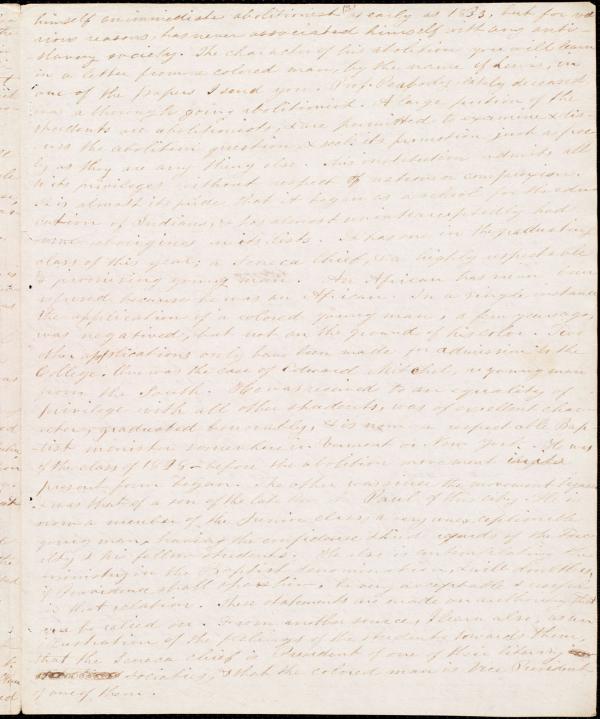 himself an immediate abolitionist as early as 1833, but for va
rious reasons, has never associated himself with any anti-
slavery society. The character of his abolition you will learn
in a letter from a colored man, by the name of Lewis, in
one of the papers I send you. Prof. Peabody, lately deceased
was a thorough going abolitionist. A large portion of the
students are abolitionists, & are permitted to examine & dis-
cuss the abolition question, & seek its promotion just as free
ly as they are any thing else. This institution admits all
to its privileges without respect of nation or complexion.
It is almost its pride that it began as a school for the edu
cation of Indians, & has almost uninterruptedly had
some aborigines in its lists. It has one in the graduating
class of this year; a Seneca Chief, & a highly respectable
& promising young man. An African has never been
refused because he was an African. In a single instance
the application of a colored young man, a few years ago,
was negatived, but not on the ground of his color. Two
other applications only have been made for admission to the
College. One was the case of Edward Mitchel, a young man
from the South. He was received to an equality of
privilege with all other students, was of excellent char-
acter, graduated honorably, & is now a respectable Bap-
tist minister somewhere in Vermont or New York. He was
of the class of 18 – before the abolition movement in its
present form began. The other was since the movement began
& was that of a son of the late Paul of this city. He is
now a member of the Junior class, a very unexceptionable
young man, having the confidence and regards of the Fac
ulty & his fellow students. He also is contemplating the
ministry in the Baptist denomination, & will doubtless,
if Providence shall be very acceptable & useful
in that relation. These statements are made on authority that
can be relied on. From another source, I learn also, as an
illustration of the feelings of the students towards them,
that the Seneca chief is President of one of their literary
societies, & that the colored man is Vice President
of one of them.